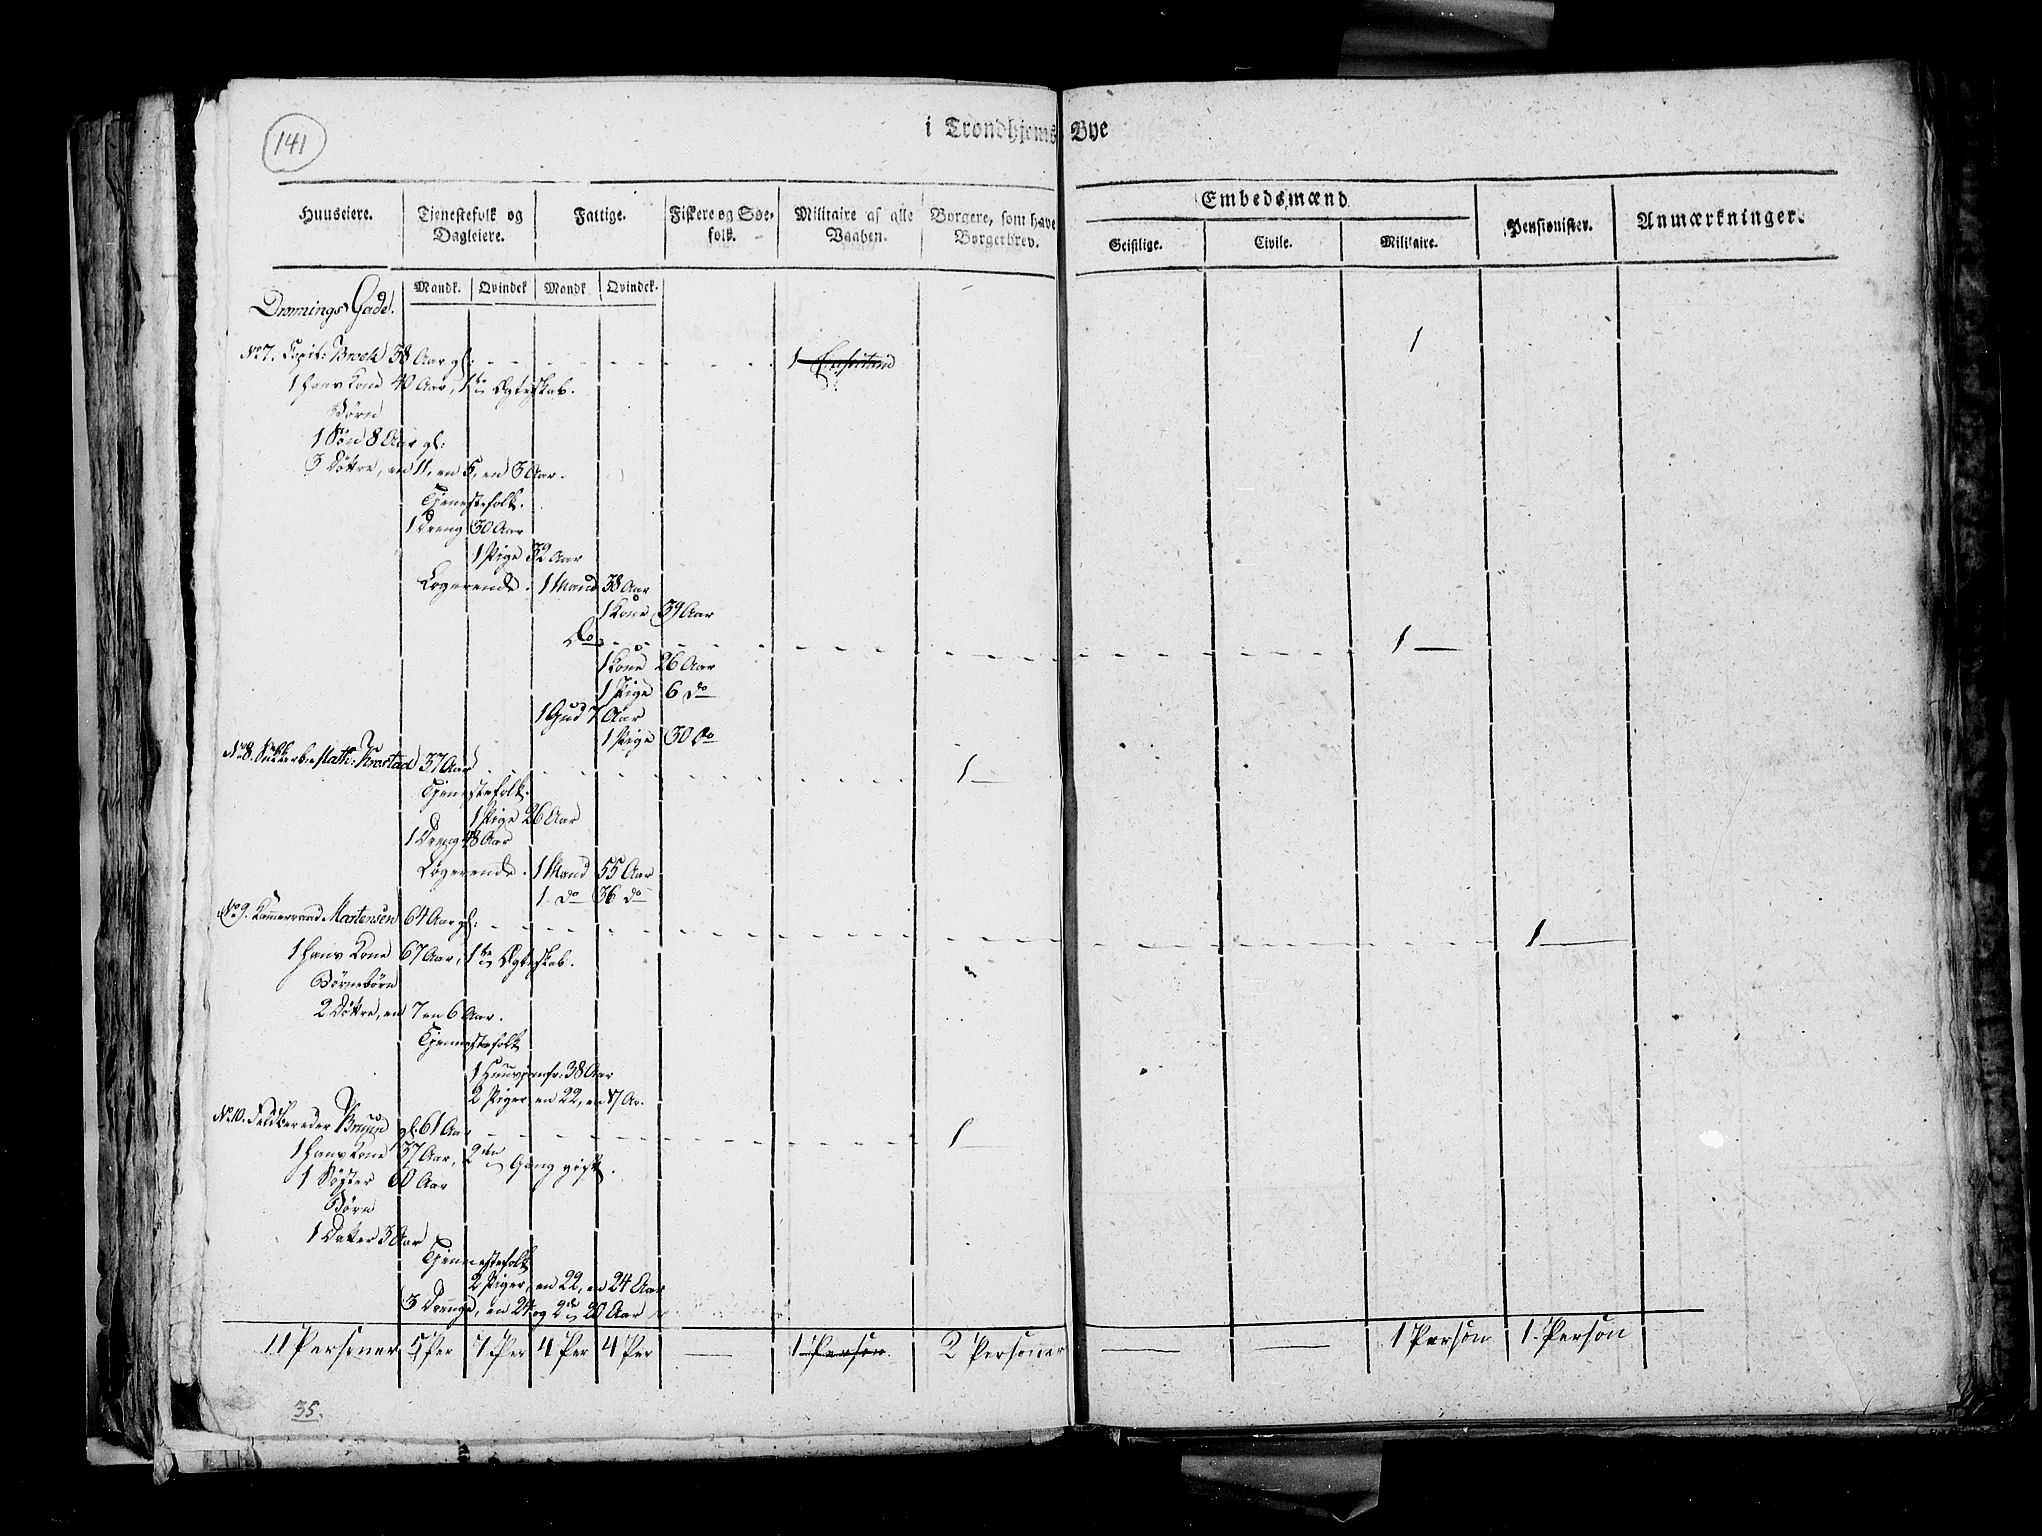 141
i Trondhjems Bye
Embedsmænd
Huuseiere.
Tienestefolk og Dagleiere.
Fattige.
Fiskere og Søefolk.
Militaire af alle Vaaben.
Borgere, som have Borgerbrev.
Geistlige.
Civile.
Militaire.
Pensionister.
Anmærkninger.
Mandk. Qvindek Mandk Qvindek.
Dronnings Gade.
No 7. Capit: Brock 38 Aar gl: 1 1
1 hans Kone 40 Aar, 1te Ægteskab.
Børn
1 Søn 8 Aar gl:
3 Døttre, en 11, en 5, en 3 Aar.
Tjenestefolk.
1 Dreng 30 Aar
1 Pige 32 Aar
Logerende. 1 Mand 38 Aar
1 Kone 39 Aar
Do 1
1 Kone 26 Aar
1 Pige 6 do
1 Gud 7 Aar
1 Pige 30 do
No 8. Math: Krostad 37 Aar 1
Tjenestefolk.
1 Pige 26 Aar
1 Dreng 48 Aar
Logerende. 1 Mand 55 Aar
1 do 36 do
No 9. Kammerraad Mortensen 64 Aar gl: 1
1 hans Kone 67 Aar, 1te Ægteskab.
Børnebørn
2 Døttre, en 7 en 6 Aar.
Tjennestefolk
1 Huusjomfr: 38 Aar
2 Piger, en 22, en 17 Ar.
No 10. Feldbereder Bruun gl: 61 Aar 1
1 hans Kone 37 Aar, 2den Gang gift.
1 Søster 60 Aar
Børn
1 Datter 3 Aar
Tjennestefolk
2 Piger, en 22, en 24 Aar
3 Drenge, en 24 og 2de 20 Aar
11 Personer 5 Per 7 Per 4 Per 4 Per — 1 Person 2 Personer — — 1 Person 1 Person
35.